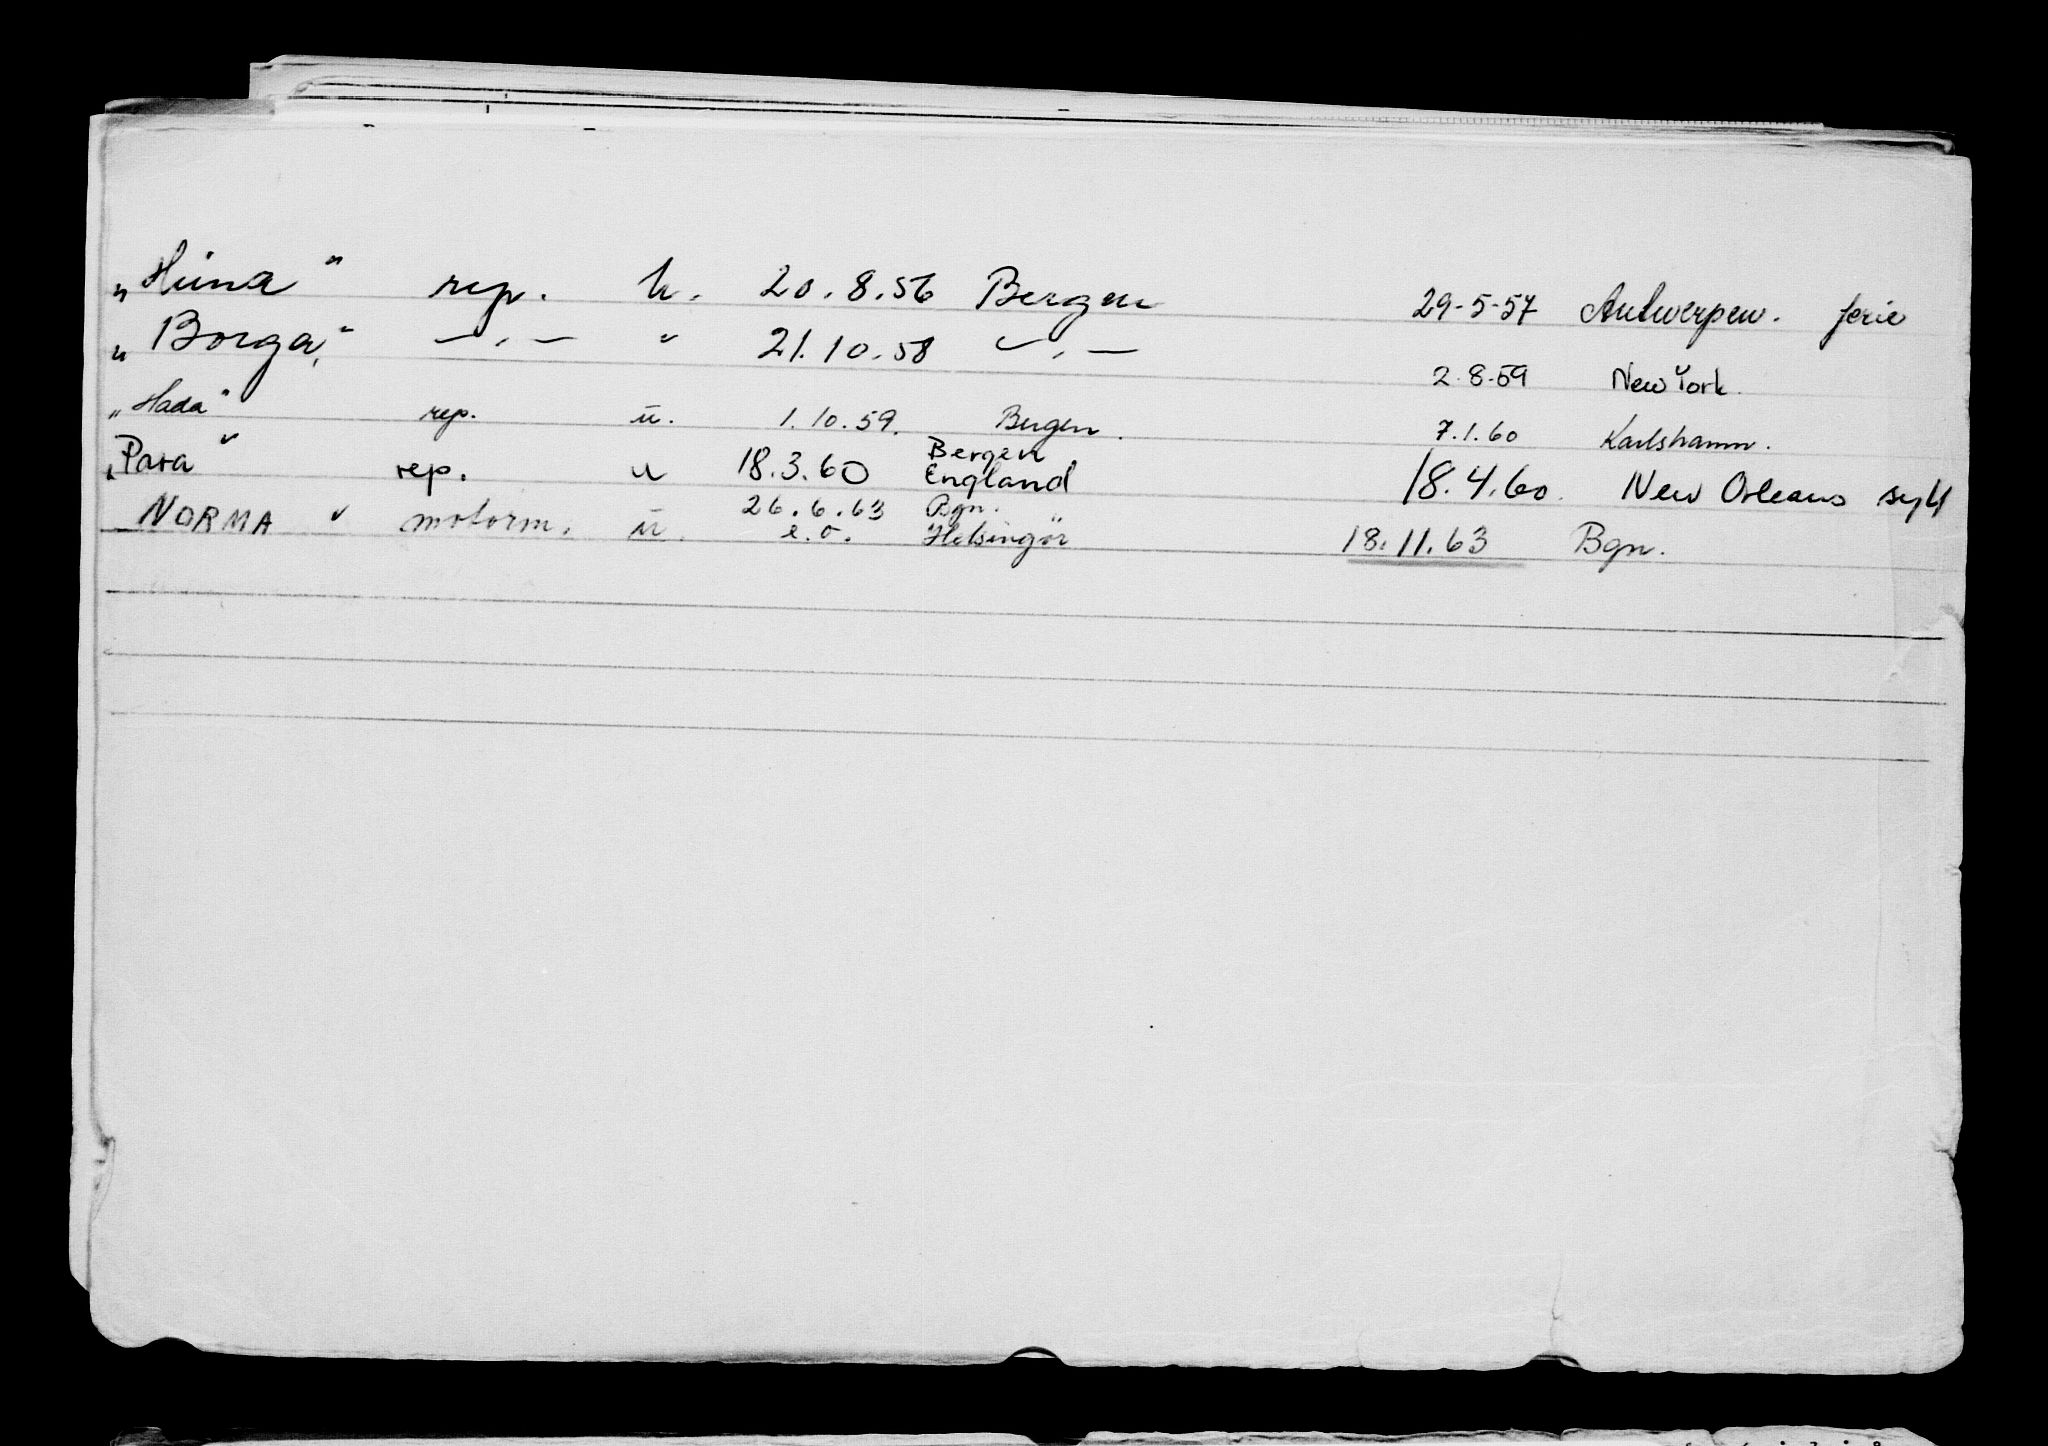 „Hima" rep. u. 20.8.56 Bergen 29-5-57 Antwerpen. ferie
„Borga," — . — " 21.10.58 — . — 2.8.59 New York.
„Hada" rep. u. 1.10.59. Bergen. 7.1.60 Karlshamn.
„Para" rep. u 18.3.60 Bergen England 18.4.60. New Orleans syk
NORMA " motorm. u. 26.6.63 Bgn.
e.o. Helsingör 18.11.63 Bgn.